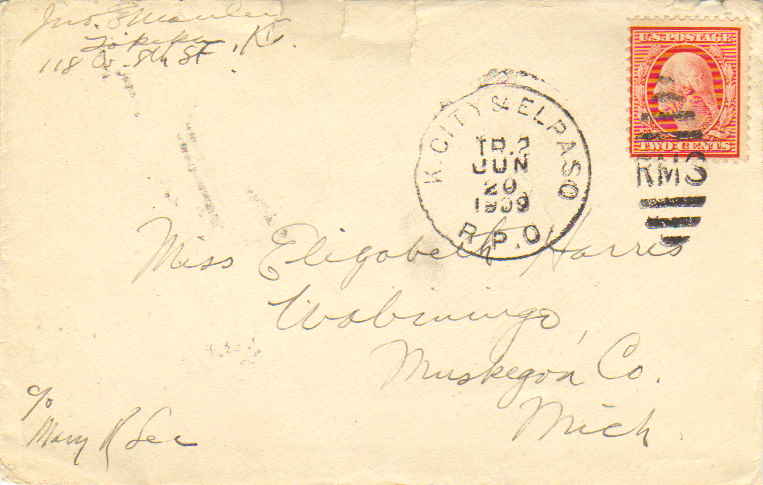 Jno. S
Topeka, Ks.
118 W. 8th St
U.S. POSTAGE
TWO CENTS
K. CITY & ELPASO
TR. 2
JUN
20
1909
R.P.O.
RMS
Miss Elizabeth Harris
Wabiningo,
Muskegon Co.
Mich
c/o
Mary R Lee